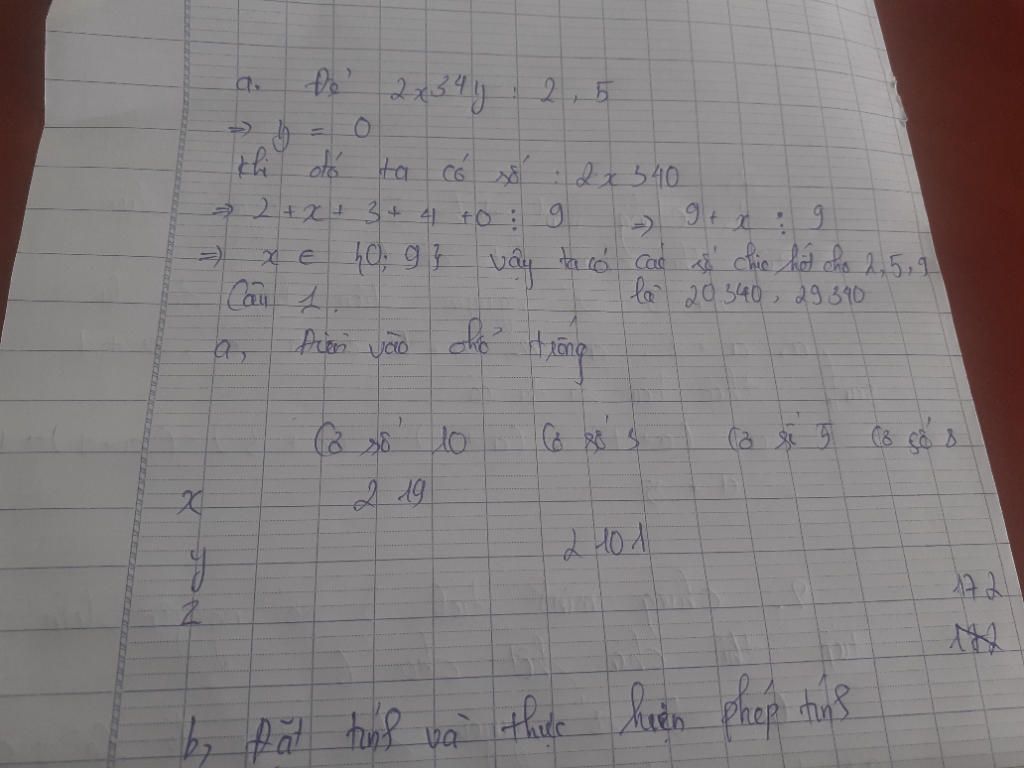 a. Để 2x34y : 2, 5
=> y = 0
Khi đó ta có số : 2x340
=> 2 + x + 3 + 4 + 0 : 9 => 9 + x : 9
=> x ∈ {0; 9} vậy ta có các số chia hết cho 2, 5, 9
là 20340, 29340
Câu 1.
a, Điền vào chỗ trống
Cơ số 10 Cơ số 3 Cơ số 5 Cơ số 8
x 219
y 2101
z 172
b, Đặt tính và thực hiện phép tính